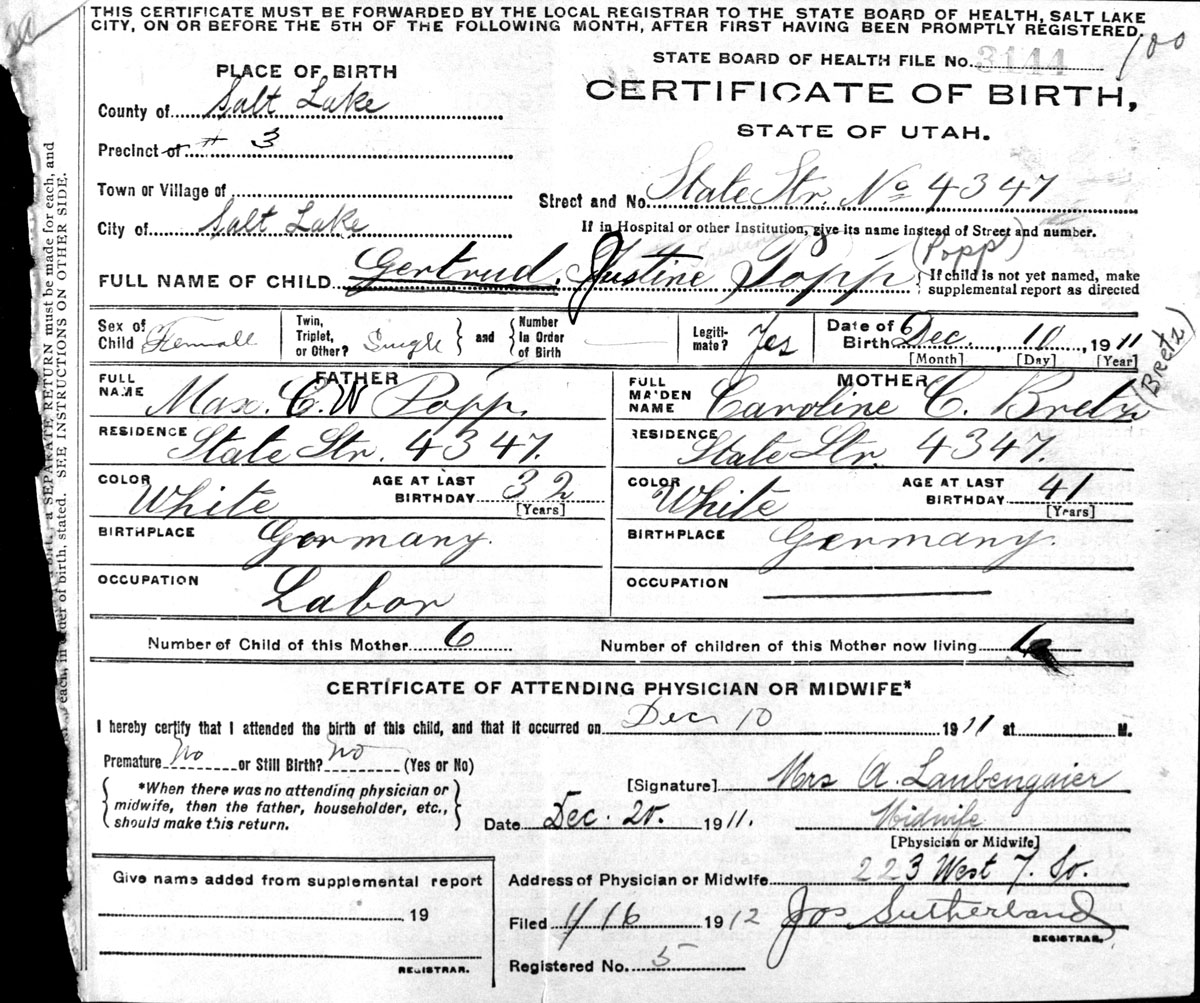 THIS CERTIFICATE MUST BE FORWARDED BY THE LOCAL REGISTRAR TO THE STATE BOARD OF HEALTH, SALT LAKE
CITY, ON OR BEFORE THE 5TH OF THE FOLLOWING MONTH, AFTER FIRST HAVING BEEN PROMPTLY REGISTERED.
100
STATE BOARD OF HEALTH FILE No. 3144
PLACE OF BIRTH
CERTIFICATE OF BIRTH,
STATE OF UTAH.
County of Salt Lake
Precinct of # 3
Town or Village of
Street and No. State Str. No 4347
City of Salt Lake
If in Hospital or other Institution, give its name instead of Street and number.
(Popp)
FULL NAME OF CHILD Gertrud. Justine Popp
If child is not yet named, make
supplemental report as directed
Sex of Child Femall
Twin, Triplet, or Other? Single
and
Number In Order of Birth
Legiti-mate? Yes
Date of Birth Dec. 10, 1911
[Month] [Day] [Year]
FATHER
FULL NAME Max. C. W Popp.
RESIDENCE State Str. 4347.
COLOR White
AGE AT LAST BIRTHDAY 32
[Years]
BIRTHPLACE Germany.
OCCUPATION Labor
MOTHER
FULL MAIDEN NAME Caroline C. Bretz
(Bretz)
RESIDENCE State Str. 4347.
COLOR White
AGE AT LAST BIRTHDAY 41
[Years]
BIRTHPLACE Germany.
OCCUPATION
Number of Child of this Mother 6
Number of children of this Mother now living
CERTIFICATE OF ATTENDING PHYSICIAN OR MIDWIFE*
I hereby certify that I attended the birth of this child, and that it occurred on Dec 10 1911 at M.
Premature No or Still Birth? No (Yes or No)
*When there was no attending physician or
midwife, then the father, householder, etc.,
should make this return.
[Signature] Mrs A. Laubengaier
Date Dec. 20. 1911.
Midwife
[Physician or Midwife]
Give name added from supplemental report
19
REGISTRAR.
Address of Physician or Midwife 223 West 7. So.
Filed 1/16 1912 Jos Sutherland
REGISTRAR.
Registered No. 5
a SEPARATE RETURN must be made for each, and
each, in order of birth, stated. SEE INSTRUCTIONS ON OTHER SIDE.